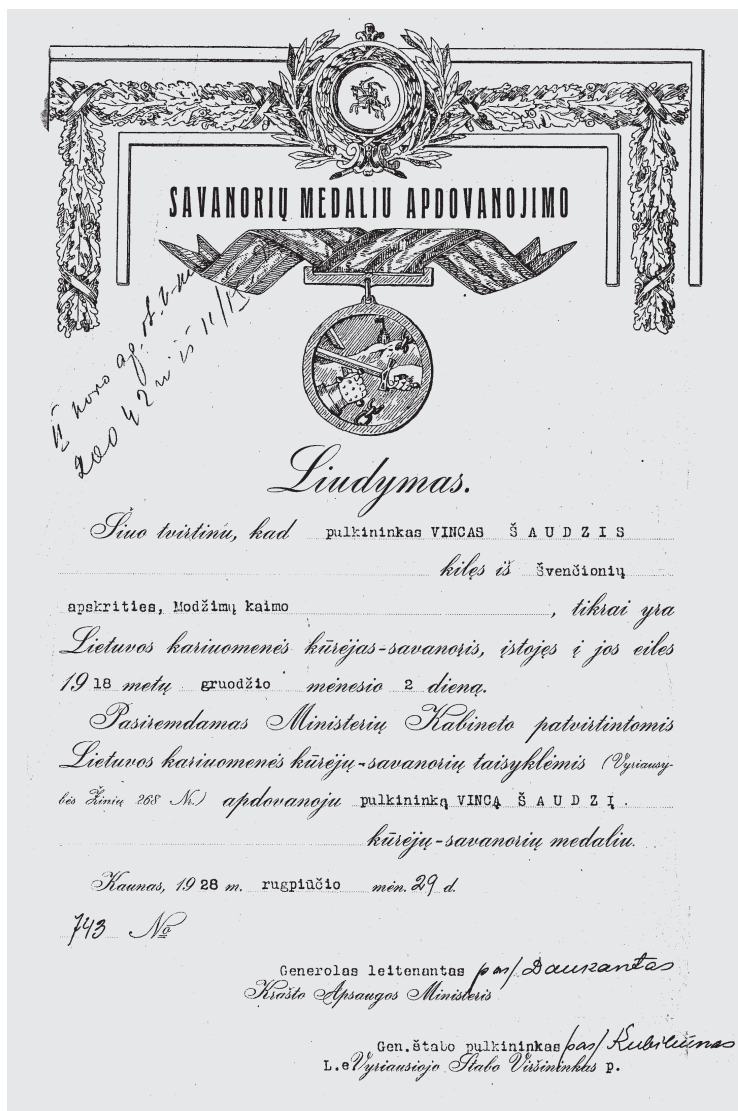 SAVANORIŲ MEDALIU APDOVANOJIMO
II
200 42 iš 11/19
Liudymas.
Šiuo tvirtinu, kad pulkininkas VINCAS ŠAUDZIS
kilęs iš Švenčionių
apskrities, Modžimų kaimo , tikrai yra
Lietuvos kariuomenės kūrėjas-savanoris, įstojęs į jos eiles
1918 metų gruodžio mėnesio 2 dieną.
Pasiremdamas Ministerių Kabineto patvirtintomis
Lietuvos kariuomenės kūrėjų-savanorių taisyklėmis (Vyriausy-
bės Žinių 268 Nr.) apdovanoju pulkininką VINCĄ ŠAUDZĮ.
kūrėjų-savanorių medaliu.
Kaunas, 1928 m. rugpiūčio mėn. 29 d.
743 No
Generolas leitenantas pas/ Daukantas
Krašto Apsaugos Ministeris
Gen.štabo pulkininkas /pas/ Kubiliūnas
L.e Vyriausiojo Štabo Viršininkas p.